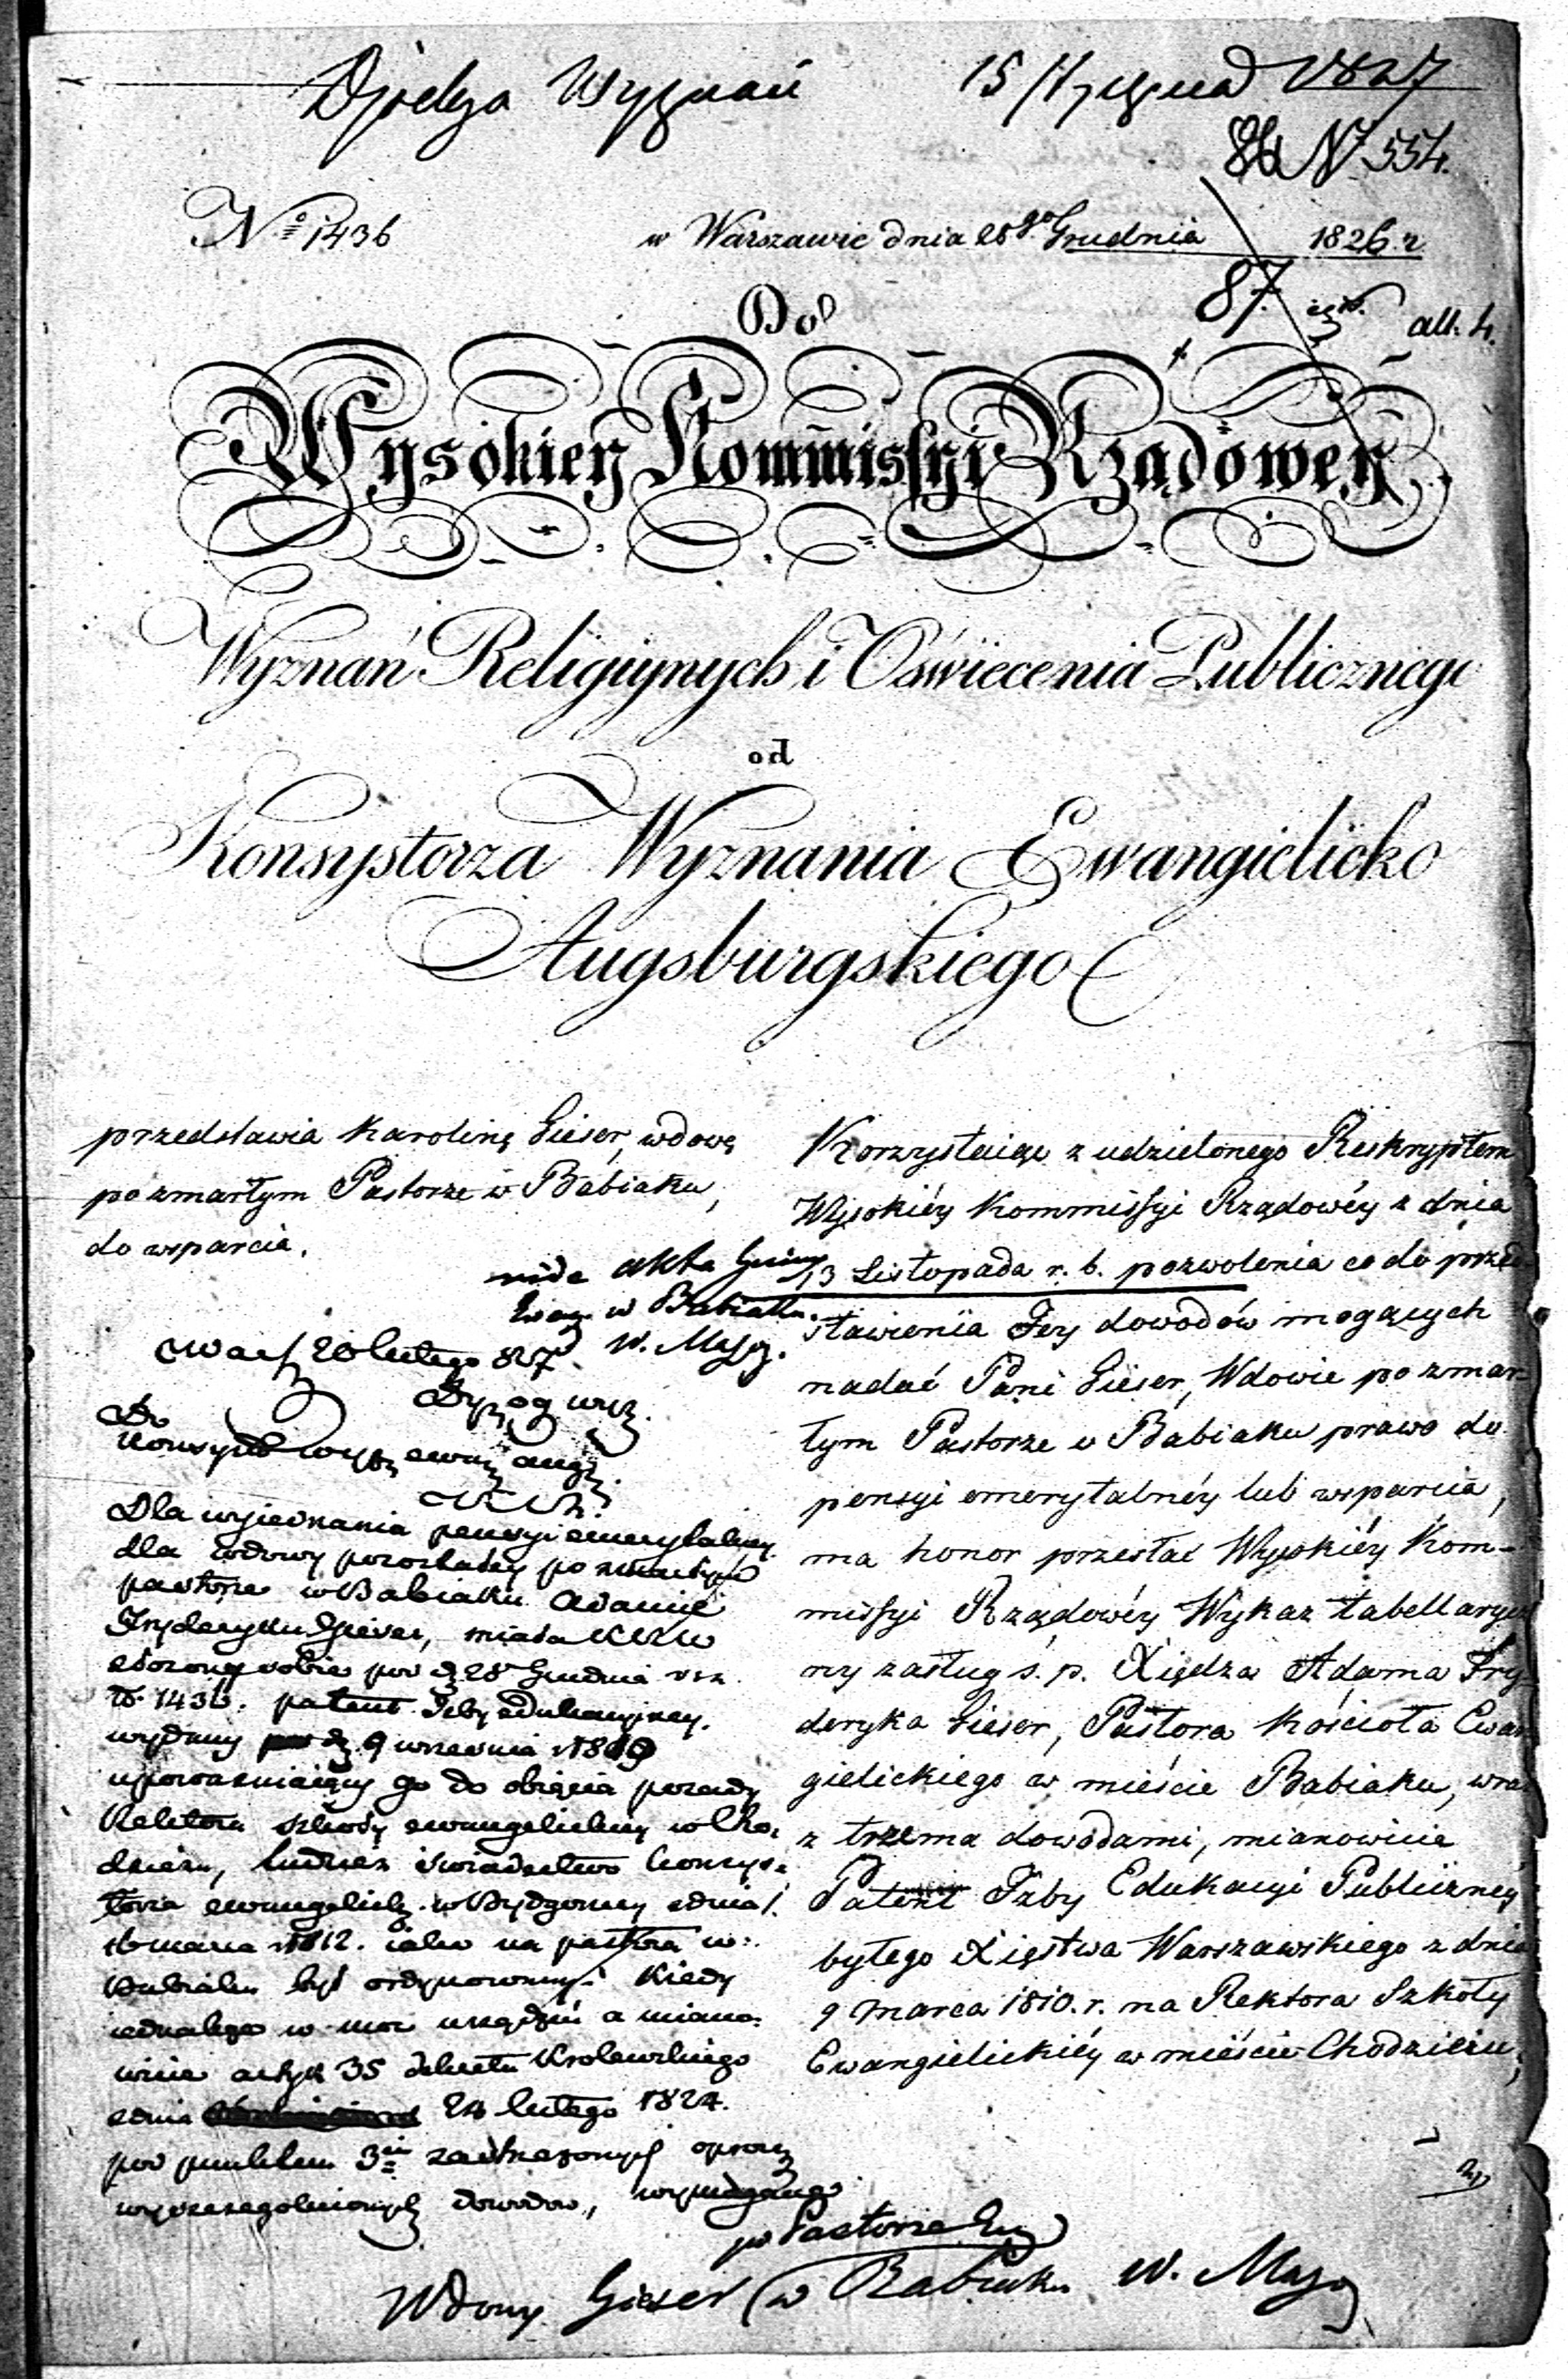 Wyznań 15 Stycznia 1827
86 N 554.
No 1436 w Warszawie dnia 28go Grudnia 1826. r
87. all. 4.
Do
Wysokiey Kommissyi Rządowey
Wyznań Religiynych i Oświecenia Publicznego
od
Konsystorza Wyznania Ewangielicko
Augsburgskiego
przedstawia Karolinę Gieser, wdowę
po zmarłym Pastorze w Babiaku,
do wsparcia.
vide akta Gminy
Ewag. w Babiaku.
W. Mazo.
20 lutego 827
Do
Dla wyiednania pensyi emerytalney
dla wdowy pozostałey po zmarłym
pastorze w Babiaku Adamie
Fryderyku Gieser, miała
złożony sobie pod d. 28 Grudnia
N. 1436. patent Izby Edukacyjney.
wydany d. 9 września
upoważniaiący go do obięcia posady
Rektora szkoły ewangelickiey w Cho,
dzieżu, tudzież świadectwo Consys,
torza ewangelick. w Bydgoszczy z dnia
marca 1812. iako na pastora w
Babiaku był ordynowanym; Kiedy
iednakże w moc urządzeń a miano,
wicie artyk 35 dekretu Krolewskiego
z dnia 24 lutego 1824.
pod punktem 3m zastrzeżonych oprocz
wyszczegolnionych dowodow, wymagane
Korzystaiąc z udzielonego Reskryptem
Wysokiéy Kommissyi Rządowéy z dnia
13 Listopada r. b. pozwolenia co do przed
stawienia Jey dowodów mogących
nadać Pani Gieser, Wdowie po zmar-
łym Pastorze w Babiaku prawo do
pensyi emerytalnéy lub wsparcia,
ma honor przesłać Wysokiéy Kom-
missyi Rządowéy Wykaz tabellarycz
ny zasług ś. p. Xiędza Adama Fry
deryka Gieser, Pastora Kościoła Ewan
gielickiego w mieście Babiaku, wraz
z trzema dowodami, mianowicie
Patent Izby Edukacyi Publiczney
byłego Xięstwa Warszawskiego z dnia
9 Marca 1810. r. na Rektora Szkoły
Ewangielickiéy w mieście Chodzieżu,
po Pastorze
Wdowy Gieser w Babiaku W. Mazo